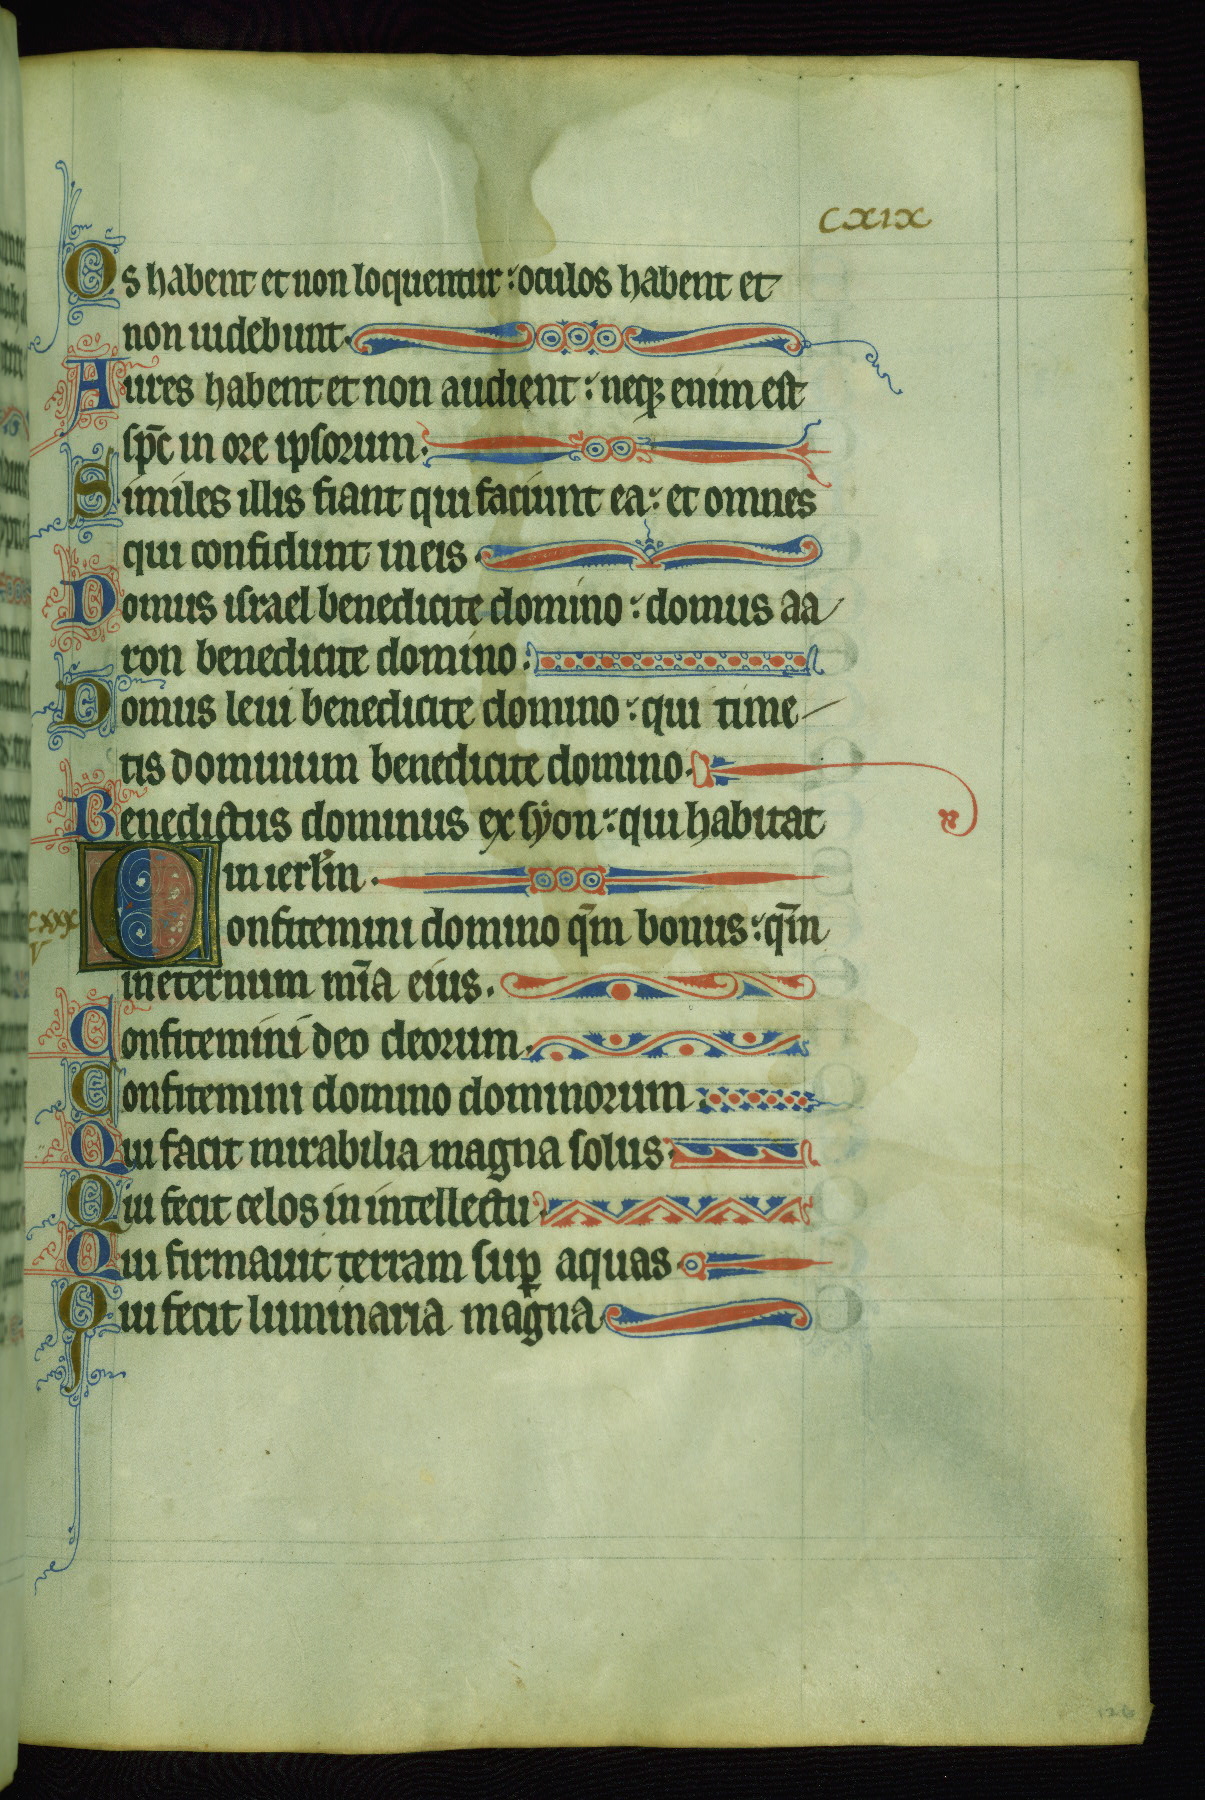 CXIX
Os habent et non loquentur: oculos habent et
non uidebunt.
Aures habent et non audient: neq; enim est
sp̄c in ore ipsorum.
Similes illis fiant qui faciunt ea: et omnes
qui confidunt in eis.
Domus israel benedicite domino: domus aa
ron benedicite domino.
Domus leui benedicite domino: qui time
tis dominum benedicite domino.
Benedictus dominus ex syon: qui habitat
in ierl̄m.
CXXX
V
Confitemini domino qm̄ bonus: qm̄
in eternum mīa eius.
Confitemini deo deorum.
Confitemini domino dominorum
Qui facit mirabilia magna solus.
Qui fecit celos in intellectu.
Qui firmauit terram sup̱ aquas.
Qui fecit luminaria magna
126